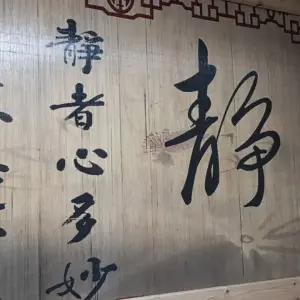 静
静者心多妙